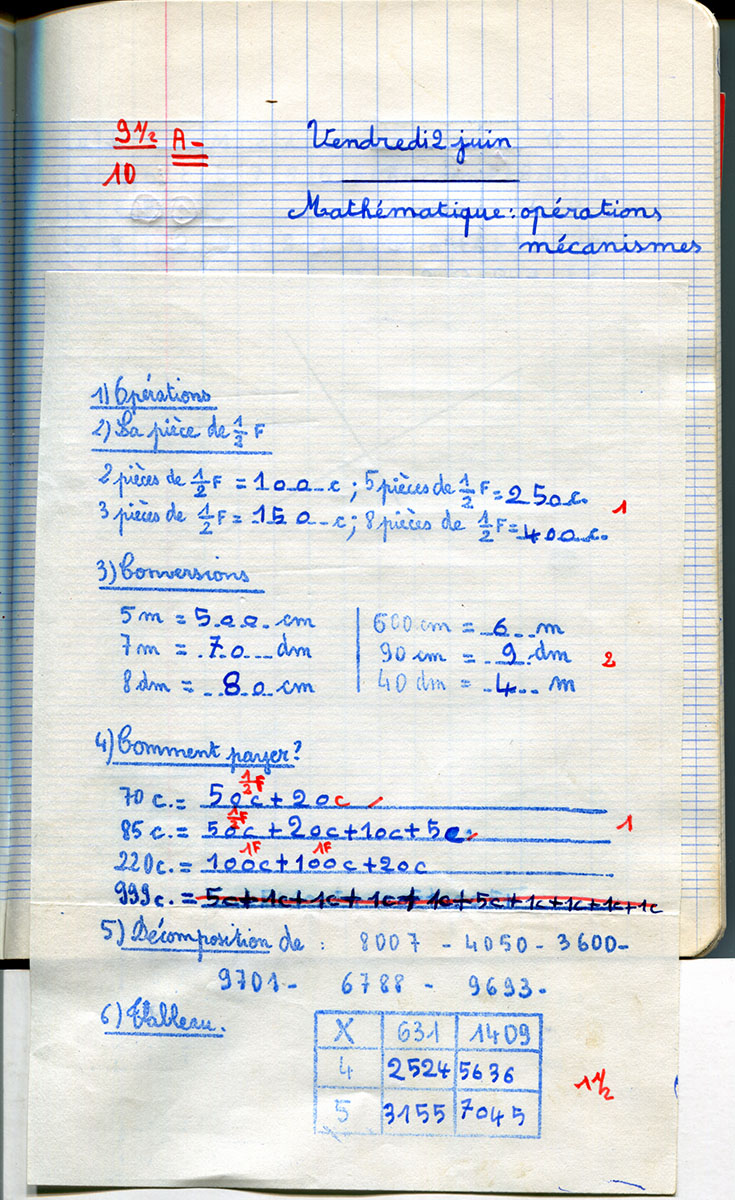 9 1/2 A-
10
Vendredi 2 juin
Mathématique : opérations,
mécanismes
1) Opérations
2) La pièce de 1/2 F
2 pièces de 1/2 F = 100 c ; 5 pièces de 1/2 F = 250 c.
3 pièces de 1/2 F = 150 c ; 8 pièces de 1/2 F = 400 c.
1
3) Conversions
5 m = 500 cm
7 m = 70 dm
8 dm = 80 cm
600 cm = 6 m
90 cm = 9 dm
40 dm = 4 m
2
4) Comment payer ?
1/2 F
70 c. = 50c + 20c
1/2 F
85 c. = 50c + 20c + 10c + 5c.
1
1F 1F
220 c. = 100c + 100c + 20c
999 c. = 5c + 1c + 1c + 1c + 1c + 5c + 1c + 1c + 1c + 1c
5) Décomposition de : 8007 - 4050 - 3600 -
9701 - 6788 - 9693 -
6) Tableau.
X 631 1409
4 2524 5636
5 3155 7045
1 1/2